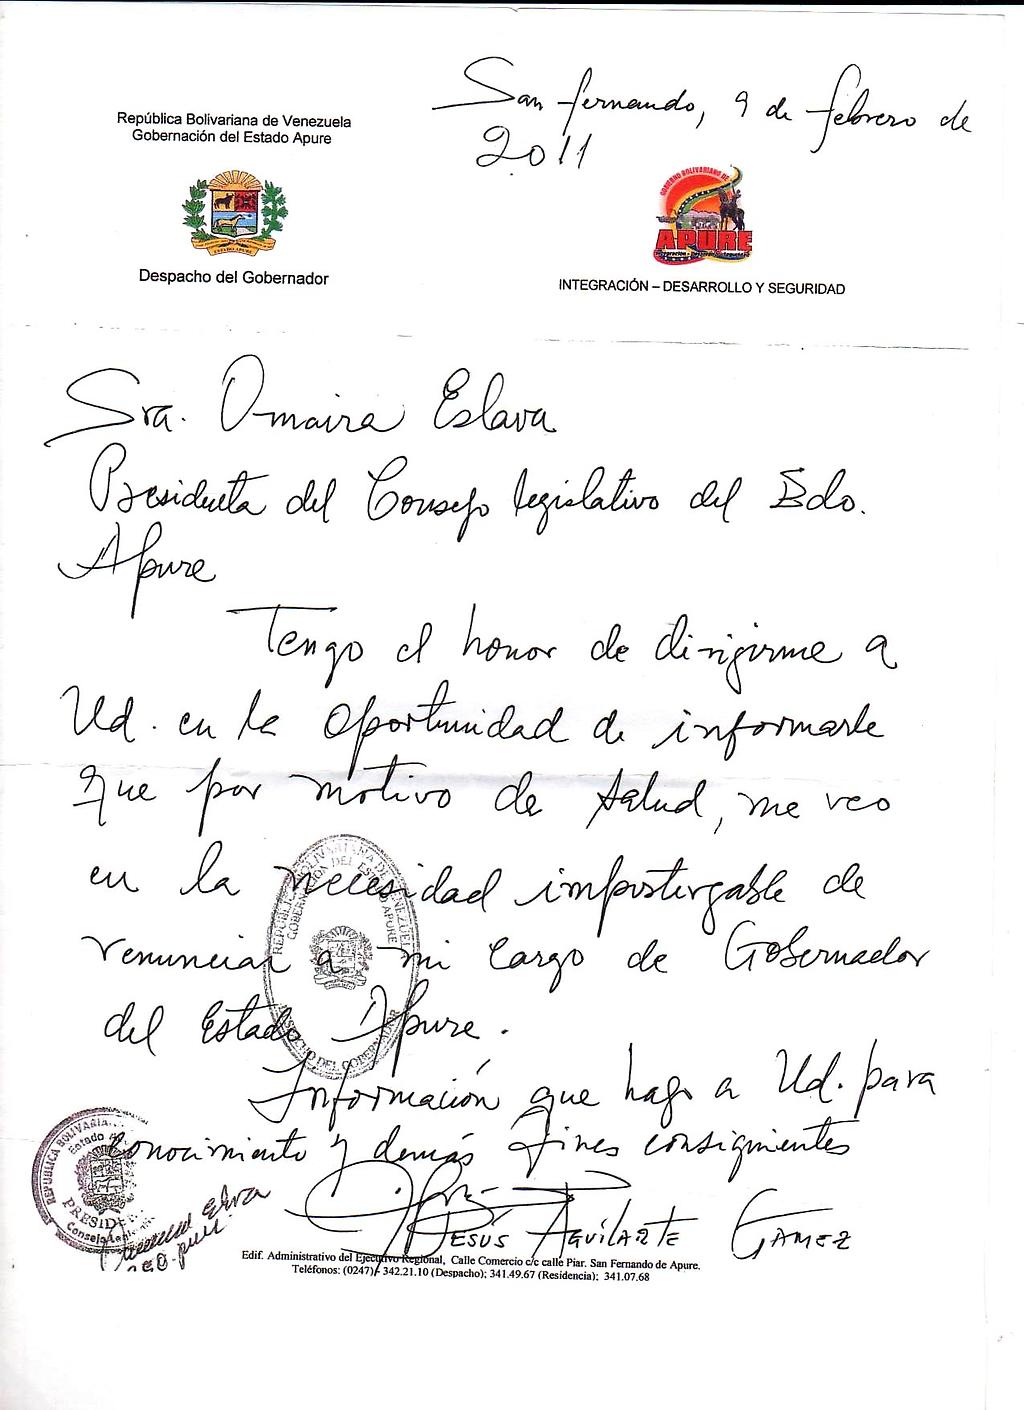 San fernando, 9 de febrero de
2011
República Bolivariana de Venezuela
Gobernación del Estado Apure
Despacho del Gobernador
GOBIERNO BOLIVARIANO DE
APURE
INTEGRACIÓN – DESARROLLO Y SEGURIDAD
Sra. Omaira Eslava
Presidenta del Consejo legislativo del Edo.
Apure
Tengo el honor de dirigirme a
Ud. en la oportunidad de informarle
que por motivo de salud, me veo
en la necesidad impostergable de
renunciar a mi cargo de Gobernador
del Estado Apure.
REPÚBLICA BOLIVARIANA DE VENEZUELA
GOBERNACIÓN DEL ESTADO APURE
DESPACHO DEL GOBERNADOR
Información que hago a Ud. para
conocimiento y demás fines consiguientes
REPUBLICA BOLIVARIANA
Estado
PRESIDE
Consejo Legisl
JESÚS AGUILARTE GAMEZ
Edif. Administrativo del Ejecutivo Regional, Calle Comercio c/c calle Piar. San Fernando de Apure.
Teléfonos: (0247)- 342.21.10 (Despacho); 341.49.67 (Residencia); 341.07.68